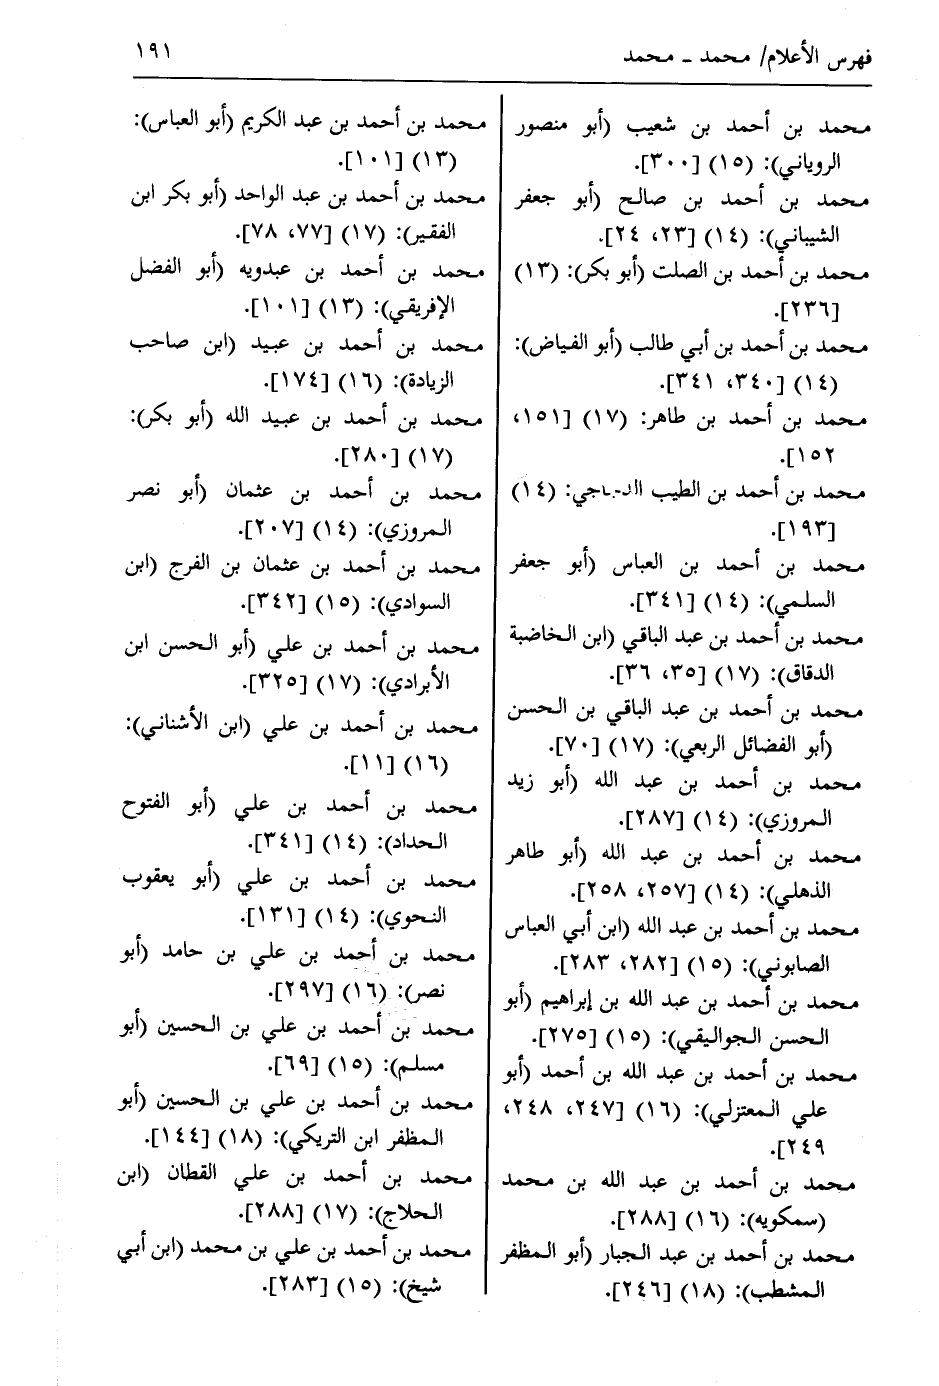 فهرس الأعلام/ محمد ــ محمد
١٩١
محمد بن أحمد بن شعيب (أبو منصور
الروياني): (١٥) [٣٠٠].
محمد بن أحمد بن صالح (أبو جعفر
الشيباني): (١٤) [٢٣، ٢٤].
محمد بن أحمد بن الصلت (أبو بكر): (١٣)
[٢٣٦].
محمد بن أحمد بن أبي طالب (أبو الفياض):
(١٤) [٣٤٠، ٣٤١].
محمد بن أحمد بن طاهر: (١٧) [١٥١،
١٥٢].
محمد بن أحمد بن الطيب: (١٤)
[١٩٣].
محمد بن أحمد بن العباس (أبو جعفر
السلمي): (١٤) [٣٤١].
محمد بن أحمد بن عبد الباقي (ابن الخاضبة
الدقاق): (١٧) [٣٥، ٣٦].
محمد بن أحمد بن عبد الباقي بن الحسن
(أبو الفضائل الربعي): (١٧) [٧٠].
محمد بن أحمد بن عبد الله (أبو زيد
المروزي): (١٤) [٢٨٧].
محمد بن أحمد بن عبد الله (أبو طاهر
الذهلي): (١٤) [٢٥٧، ٢٥٨].
محمد بن أحمد بن عبد الله (ابن أبي العباس
الصابوني): (١٥) [٢٨٢، ٢٨٣].
محمد بن أحمد بن عبد الله بن إبراهيم (أبو
الحسن الجواليقي): (١٥) [٢٧٥].
محمد بن أحمد بن عبد الله بن أحمد (أبو
علي المعتزلي): (١٦) [٢٤٧، ٢٤٨،
٢٤٩].
محمد بن أحمد بن عبد الله بن محمد
(سمكويه): (١٦) [٢٨٨].
محمد بن أحمد بن عبد الجبار (أبو المظفر
المشطب): (١٨) [٢٤٦].
محمد بن أحمد بن عبد الكريم (أبو العباس):
(١٣) [١٠١].
محمد بن أحمد بن عبد الواحد (أبو بكر ابن
الفقير): (١٧) [٧٧، ٧٨].
محمد بن أحمد بن عبدويه (أبو الفضل
الإفريقي): (١٣) [١٠١].
محمد بن أحمد بن عبيد (ابن صاحب
الزيادة): (١٦) [١٧٤].
محمد بن أحمد بن عبيد الله (أبو بكر):
(١٧) [٢٨٠].
محمد بن أحمد بن عثمان (أبو نصر
المروزي): (١٤) [٢٠٧].
محمد بن أحمد بن عثمان بن الفرج (ابن
السوادي): (١٥) [٣٤٢].
محمد بن أحمد بن علي (أبو الحسن ابن
الأبرادي): (١٧) [٣٢٥].
محمد بن أحمد بن علي (ابن الأشناني):
(١٦) [١١].
محمد بن أحمد بن علي (أبو الفتوح
الحداد): (١٤) [٣٤١].
محمد بن أحمد بن علي (أبو يعقوب
النحوي): (١٤) [١٣١].
محمد بن أحمد بن علي بن حامد (أبو
نصر): (١٦) [٢٩٧].
محمد بن أحمد بن علي بن الحسين (أبو
مسلم): (١٥) [٦٩].
محمد بن أحمد بن علي بن الحسين (أبو
المظفر ابن التريكي): (١٨) [١٤٤].
محمد بن أحمد بن علي القطان (ابن
الحلاج): (١٧) [٢٨٨].
محمد بن أحمد بن علي بن محمد (ابن أبي
شيخ): (١٥) [٢٨٣].